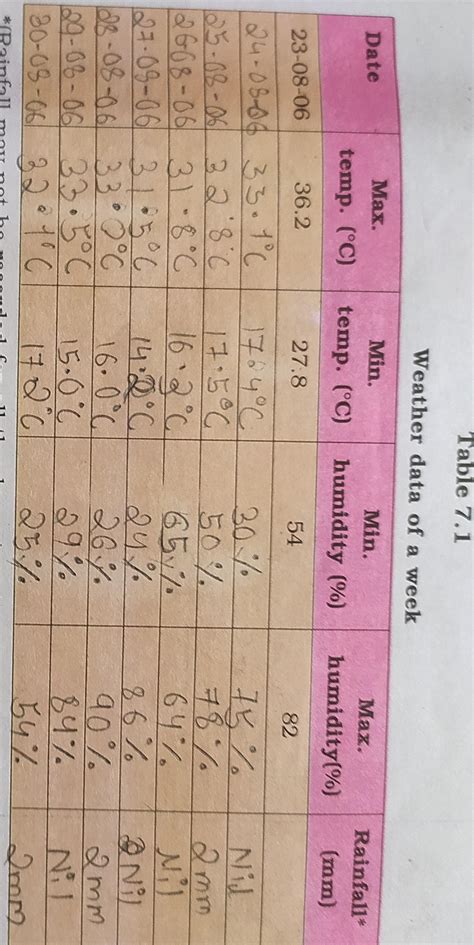 Table 7.1
Weather data of a week
Date Max. temp. (°C) Min. temp. (°C) Min. humidity (%) Max. humidity(%) Rainfall* (mm)
23-08-06 36.2 27.8 54 82
24-08-06 33.1°C 17.4°C 30% 75% Nil
25-08-06 32.8°C 17.5°C 50% 78% 2mm
26-08-06 31.8°C 16.2°C 65% 64% Nil
27-08-06 31.5°C 14.2°C 24% 86% Nil
28-08-06 33.0°C 16.0°C 26% 90% 2mm
29-08-06 33.5°C 15.0°C 29% 84% Nil
30-08-06 32.1°C 172°C 25% 54% 2mm
*(Rainfall may not be recorded